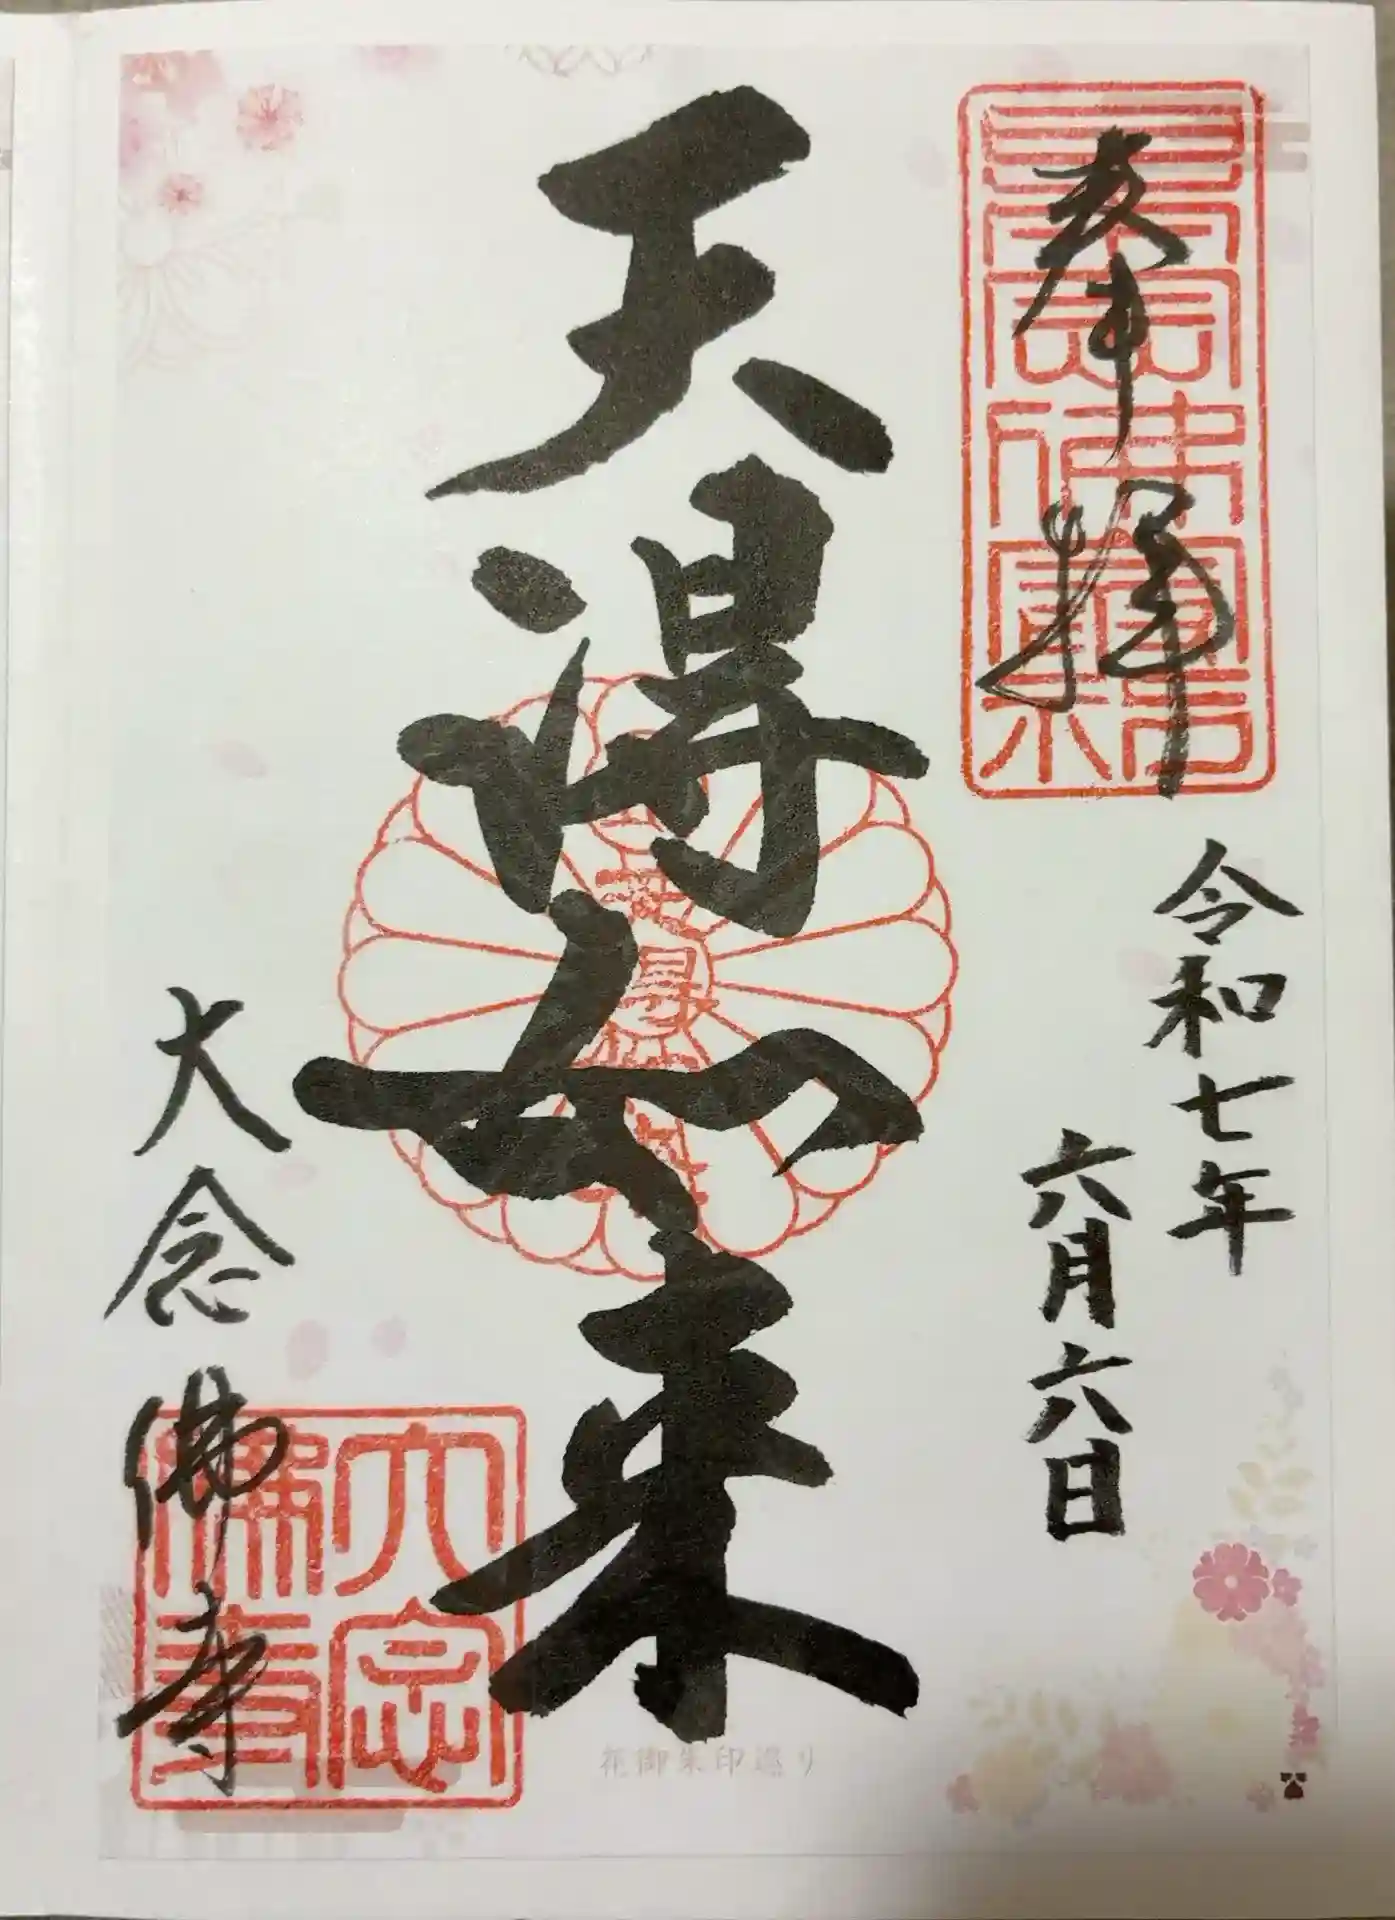 奉拝
令和七年
六月六日
天得如来
大念佛寺
大念
佛寺
花御朱印巡り